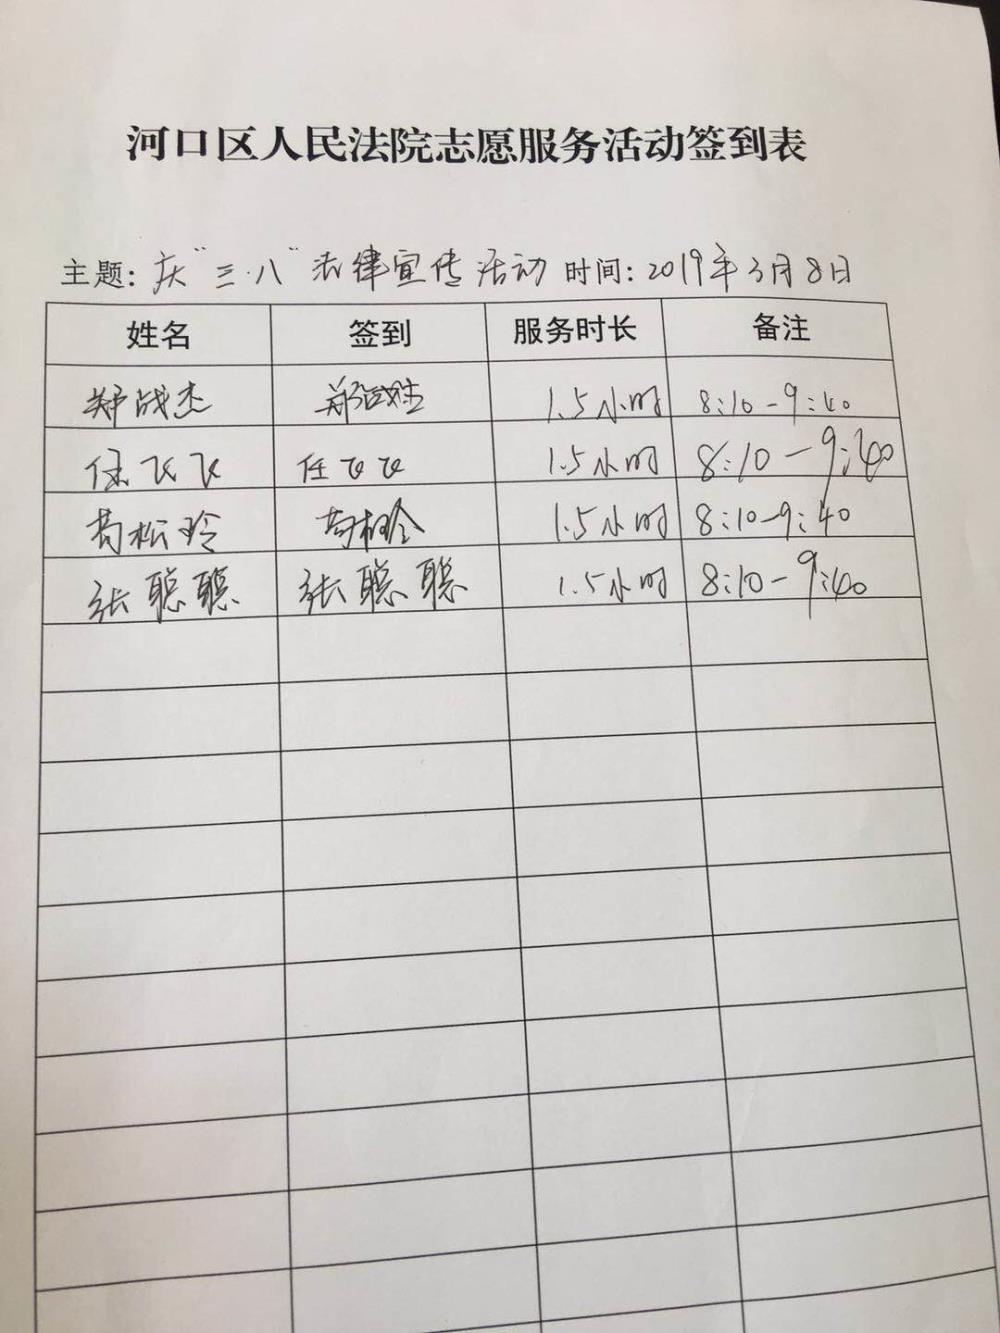 河口区人民法院志愿服务活动签到表
主题: 庆"三·八"法律宣传活动 时间: 2019年3月8日
姓名 签到 服务时长 备注
郑战杰 郑战杰 1.5小时 8:10-9:40
任飞飞 任飞飞 1.5小时 8:10-9:40
苟松玲 苟松玲 1.5小时 8:10-9:40
张聪聪 张聪聪 1.5小时 8:10-9:40